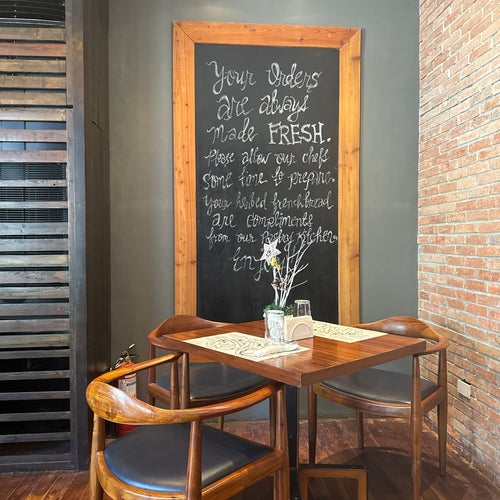 Your Orders
are always
made FRESH.
Please allow our chefs
some time to prepare.
Your herbed frenchbread
are compliments
from our Pastry Kitchen.
Enjoy